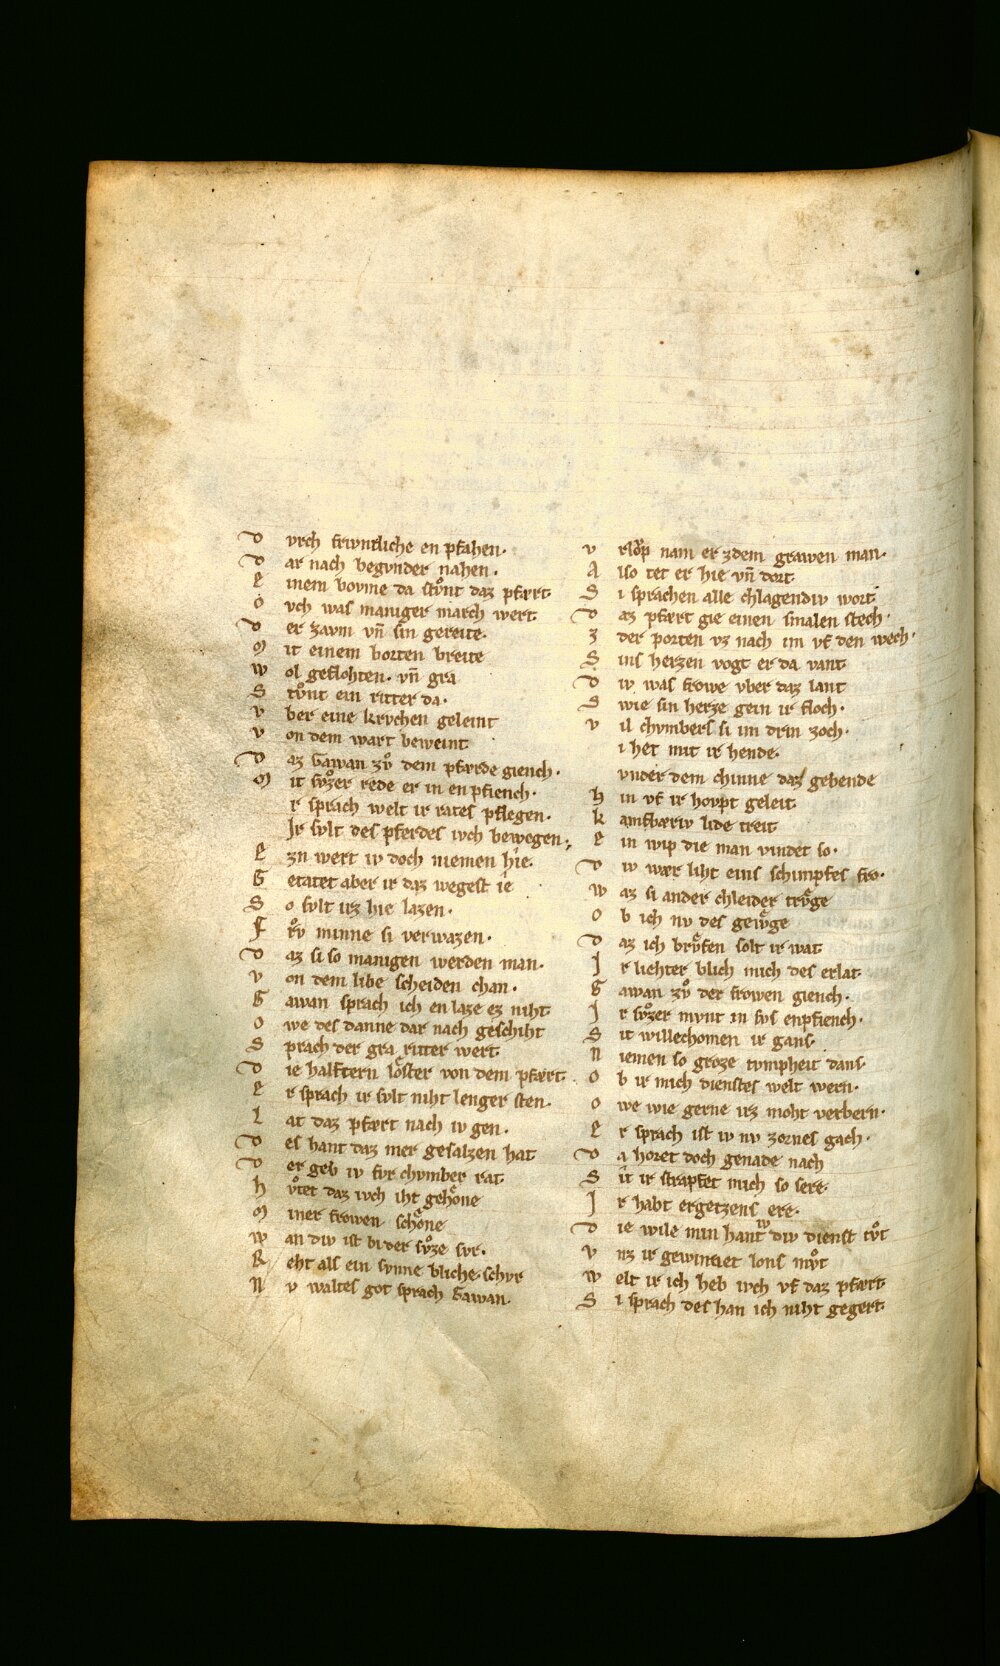 D vrch frivntliche en pfahen·
D ar nach begvnder nahen·
E inem bovme da stvͦnt daz pfært
O vch was maniger march wert
D er zavm vn̄ sin gereite·
M it einem borten breite
W ol geflohten· vn̄ gra
S tvͦnt ein ritter da·
V ber eine krvchen geleint
V on dem wart beweint
D az Gawan zvͦ dem pfærde giench·
M it svͦzer rede er in enpfiench·
r sprach welt ir rates pflegen·
Ir svlt des pferdes ivch bewegen·
E zn wert iv doch niemen hie·
G etatet aber ir daz wegest ie
S o svlt irz hie lazen·
F rv̊ minne si verwazen·
D az si so manigen werden man·
V on dem libe scheiden chan·
G awan sprach ich en laze ez niht
O we des danne dar nach geschiht
S prach der gra ritter wert
D ie halftern loͤster von dem pfært·
E r sprach ir svlt niht lenger sten·
L at daz pfært nach iv gen·
D es hant daz mer gesalzen hat
D er geb iv fvr chvmber rat
H vͦtet daz ivch iht gehoͤne
M iner frowen schoͤne
W an div ist bi der svͦze svr·
R eht als ein svnne bliche schvr
N v waltes got sprach Gawan·
V rlǒp nam er zdem grawen man·
A lso tet er hie vn̄ dort
S i sprachen alle chlagendiv wort
D az pfært gie einen smalen stech·
Z der porten vz nach im vf den wech·
S ins herzen vogt er da vant
D iv was frowe vber daz lant
S wie sin herze gein ir floch·
V il chvmbers si im drin zoch·
i het mit ir hende·
vnder dem chinne daz gebende
H in vf ir hovpt geleit
K amfbæriv lide treit
E in wip die man vindet so·
D iv wær liht eins schimpfes fro·
W az si ander chleider trvͤge
O b ich nv des gewͤge
D az ich brvͤfen solt ir wat
I r liehter blich mich des erlat
G awan zvͦ der frowen giench·
I r svͦzer mvnt in svs enpfiench·
S it willechomen ir gans
N iemen so groze tvmpheit dans
O b ir mich dienstes welt wern·
O we wie gerne irz moht verbern·
E r sprach ist iv nv zornes gach·
D a horet doch genade nach
S it ir strapfet mich so sere·
I r habt ergetzens ere·
D ie wile min hant iv div dienst tvͦt
V nz ir gewinnet lons mvͦt
W elt ir ich heb ivch vf daz pfært
S i sprach des han ich niht gegert